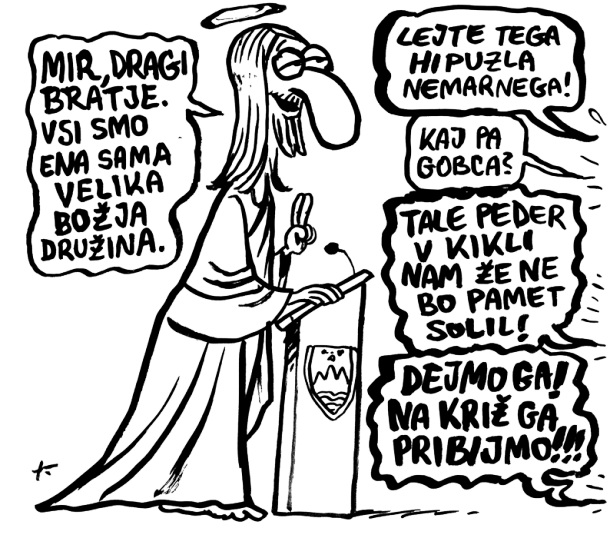 MIR, DRAGI
BRATJE.
VSI SMO
ENA SAMA
VELIKA
BOŽJA
DRUŽINA.
LEJTE TEGA
HIPUZLA
NEMARNEGA!
KAJ PA
GOBCA?
TALE PEDER
V KIKLI
NAM ŽE NE
BO PAMET
SOLIL!
DEJMO GA!
NA KRIŽ GA
PRIBIJMO!!!